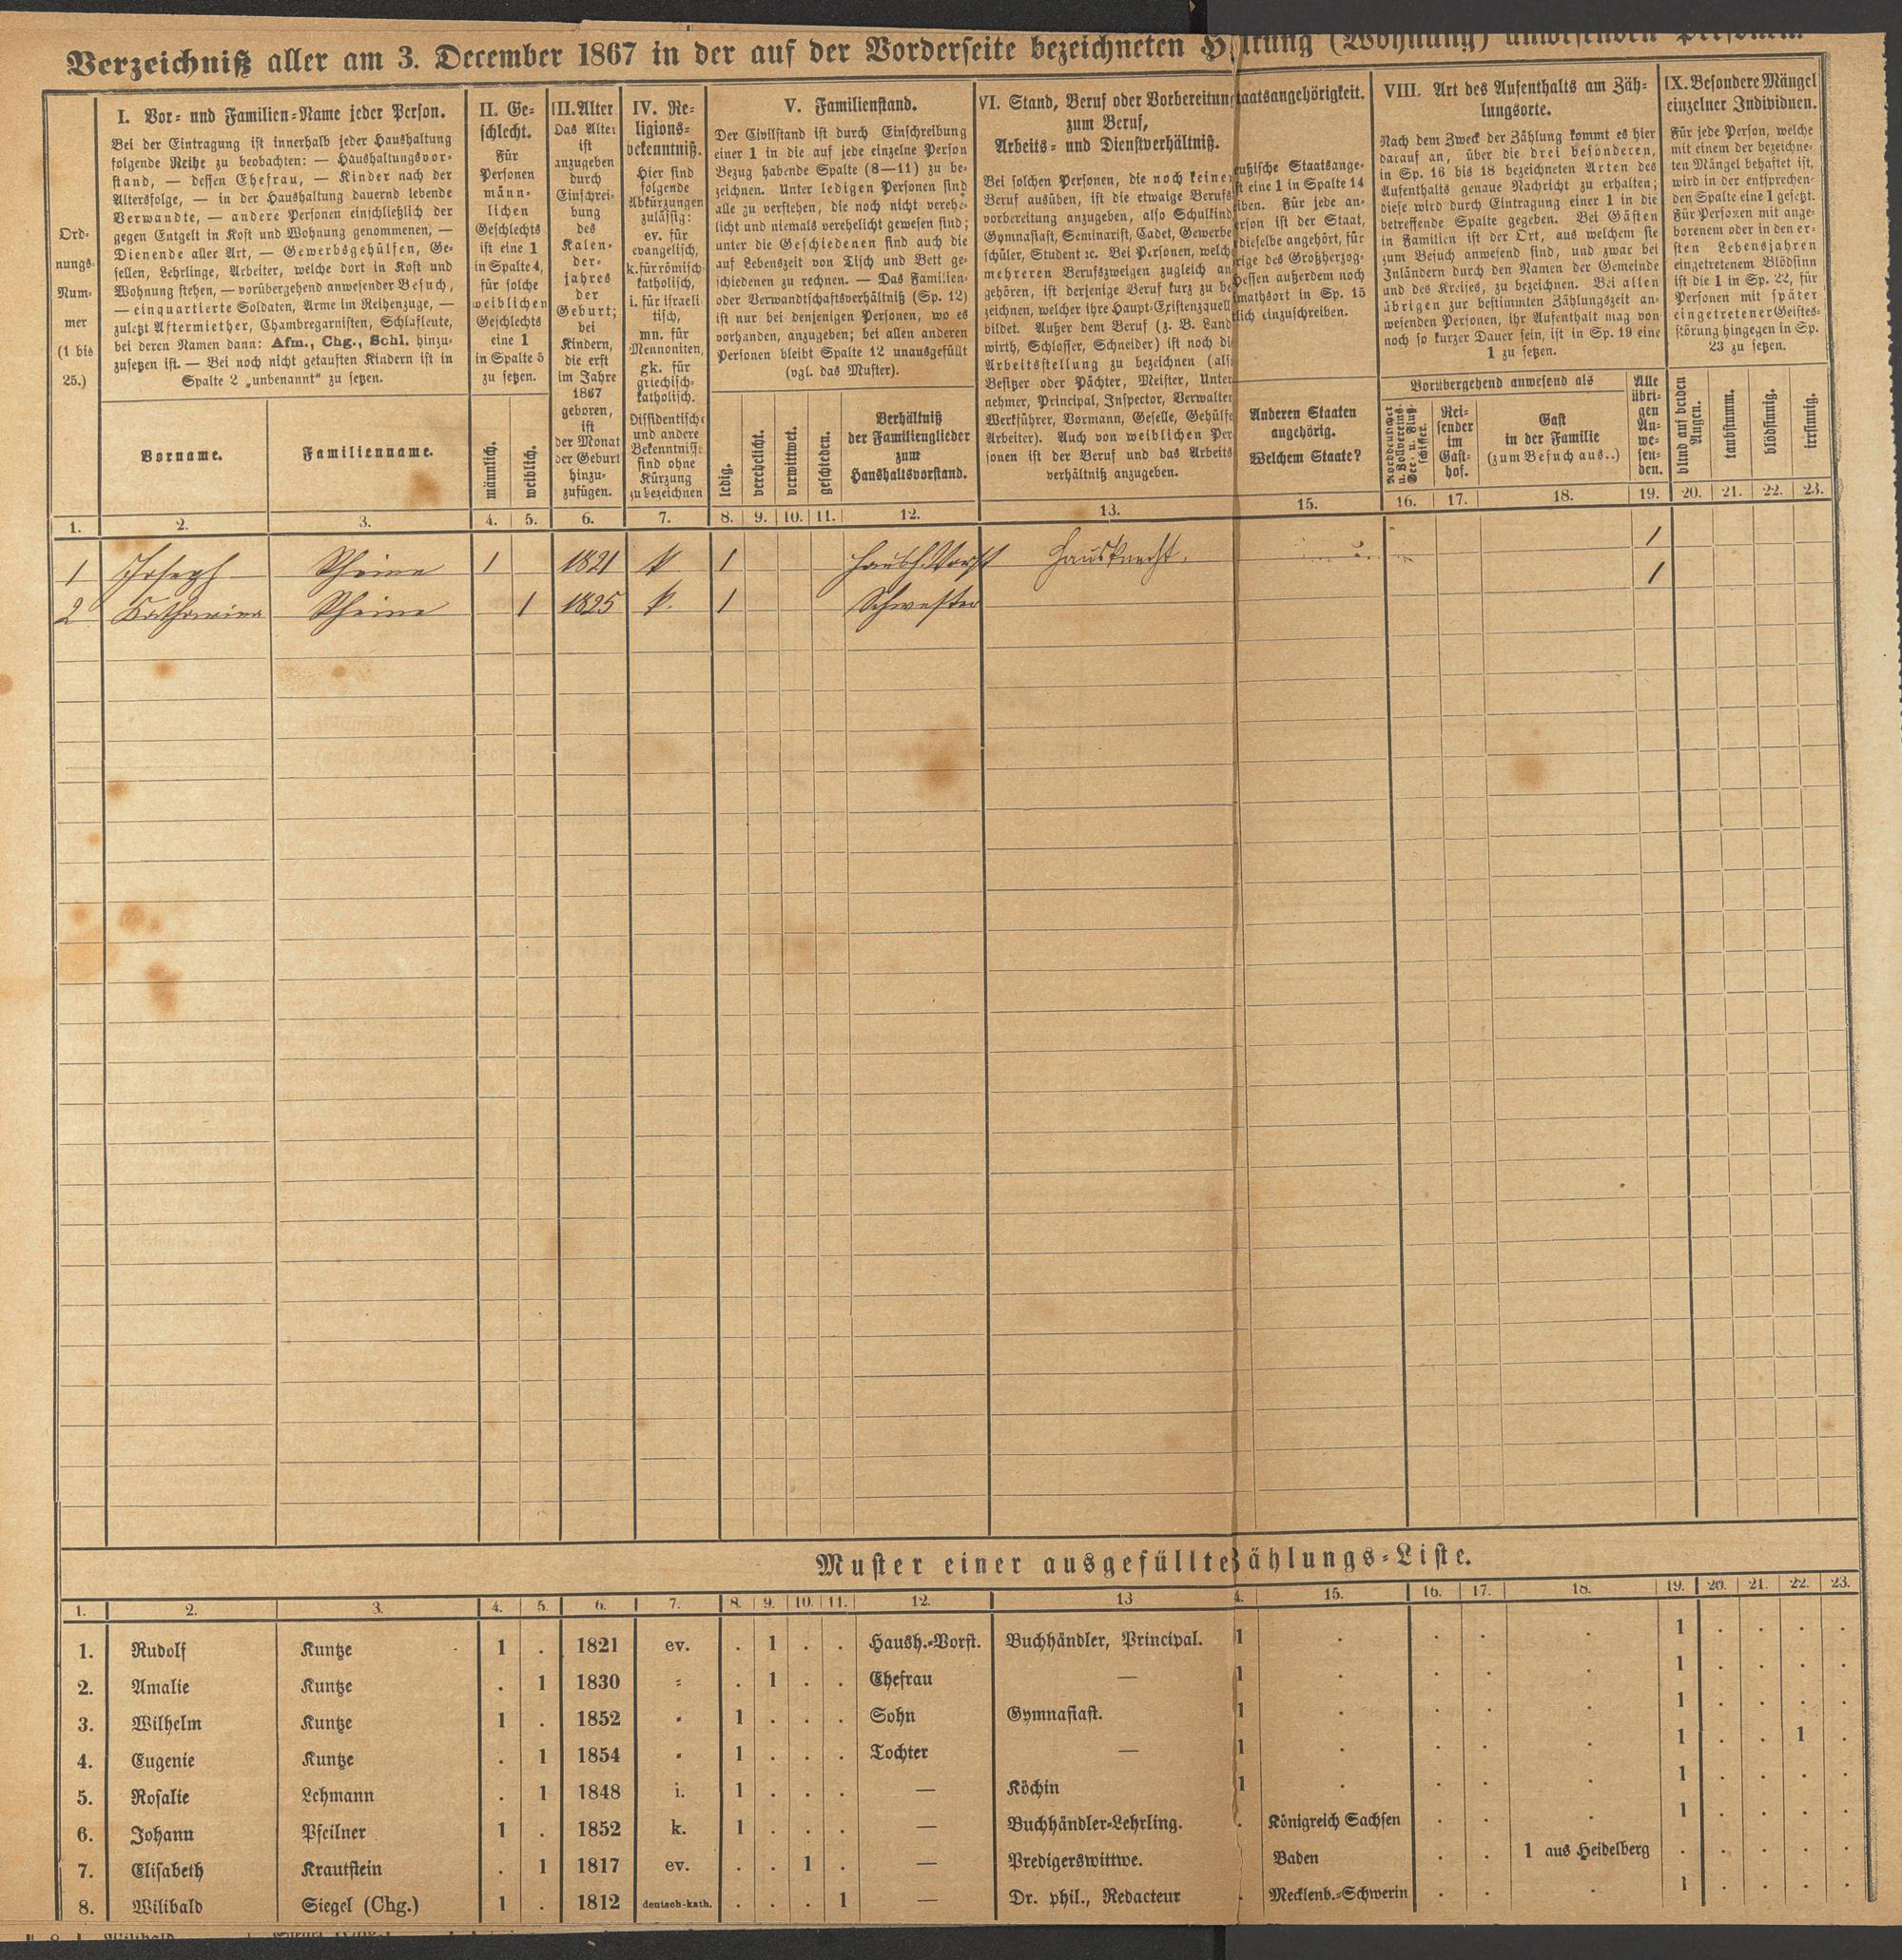 Verzeichniß aller am 3. December 1867 in der auf der Vorderseite bezeichneten H ltung (Wohnung) anwesenden Personen.
Ord-
nungs-
Num-
mer
(1 bis
25.)
I. Vor- und Familien-Name jeder Person.
Bei der Eintragung ist innerhalb jeder Haushaltung
folgende Reihe zu beobachten: — Haushaltungsvor-
stand, — dessen Ehefrau, — Kinder nach der
Altersfolge, — in der Haushaltung dauernd lebende
Verwandte, — andere Personen einschließlich der
gegen Entgelt in Kost und Wohnung genommenen, —
Dienende aller Art, — Gewerbsgehülfen, Ge-
sellen, Lehrlinge, Arbeiter, welche dort in Kost und
Wohnung stehen, — vorübergehend anwesender Besuch,
— einquartierte Soldaten, Arme im Reihenzuge, —
zuletzt Aftermiether, Chambregarnisten, Schlafleute,
bei deren Namen dann: Afm., Chg., Schl. hinzu-
zusetzen ist. — Bei noch nicht getauften Kindern ist in
Spalte 2 „unbenannt" zu setzen.
Vorname.
Familienname.
II. Ge-
schlecht.
Für
Personen
männ-
lichen
Geschlechts
ist eine 1
in Spalte 4,
für solche
weiblichen
Geschlechts
eine 1
in Spalte 5
zu setzen.
männlich.
weiblich.
III. Alter
Das Alter
ist
anzugeben
durch
Einschrei-
bung
des
Kalen-
der-
jahres
der
Geburt;
bei
Kindern,
die erst
im Jahre
1867
geboren,
ist
der Monat
der Geburt
hinzu-
zufügen.
IV. Re-
ligions-
bekenntniß.
Hier sind
folgende
Abkürzungen
zulässig:
ev. für
evangelisch,
k. für römisch-
katholisch,
i. für israeli-
tisch,
mn. für
Mennoniten,
gk. für
griechisch-
katholisch.
Dissidentische
und andere
Bekenntnisse
sind ohne
Kürzung
zu bezeichnen
V. Familienstand.
Der Civilstand ist durch Einschreibung
einer 1 in die auf jede einzelne Person
Bezug habende Spalte (8—11) zu be-
zeichnen. Unter ledigen Personen sind
alle zu verstehen, die noch nicht verehe-
licht und niemals verehelicht gewesen sind;
unter die Geschiedenen sind auch die
auf Lebenszeit von Tisch und Bett ge-
schiedenen zu rechnen. — Das Familien-
oder Verwandtschaftsverhältniß (Sp. 12)
ist nur bei denjenigen Personen, wo es
vorhanden, anzugeben; bei allen anderen
Personen bleibt Spalte 12 unausgefüllt
(vgl. das Muster).
ledig.
verehelicht.
verwittwet.
geschieden.
Verhältniß
der Familienglieder
zum
Haushaltsvorstand.
VI. Stand, Beruf oder Vorbereitung
zum Beruf,
Arbeits- und Dienstverhältniß.
Bei solchen Personen, die noch keinen
Beruf ausüben, ist die etwaige Berufs
vorbereitung anzugeben, also Schulkind
Gymnasiast, Seminarist, Cadet, Gewerbe
schüler, Student ꝛc. Bei Personen, welch
mehreren Berufszweigen zugleich an
gehören, ist derjenige Beruf kurz zu be
zeichnen, welcher ihre Haupt-Existenzquell
bildet. Außer dem Beruf (z. B. Land
wirth, Schlosser, Schneider) ist noch di
Arbeitsstellung zu bezeichnen (als
Besitzer oder Pächter, Meister, Unter
nehmer, Principal, Inspector, Verwalter
Werkführer, Vormann, Geselle, Gehülfe
Arbeiter). Auch von weiblichen Per
sonen ist der Beruf und das Arbeits
verhältniß anzugeben.
taatsangehörigkeit.
eußische Staatsange-
st eine 1 in Spalte 14
iben. Für jede an-
erson ist der Staat,
dieselbe angehört, für
rige des Großherzog-
dessen außerdem noch
imathsort in Sp. 15
tlich einzuschreiben.
Anderen Staaten
angehörig.
Welchem Staate?
VIII. Art des Aufenthalts am Zäh-
lungsorte.
Nach dem Zweck der Zählung kommt es hier
darauf an, über die drei besonderen,
in Sp. 16 bis 18 bezeichneten Arten des
Aufenthalts genaue Nachricht zu erhalten;
diese wird durch Eintragung einer 1 in die
betreffende Spalte gegeben. Bei Gästen
in Familien ist der Ort, aus welchem sie
zum Besuch anwesend sind, und zwar bei
Inländern durch den Namen der Gemeinde
und des Kreises, zu bezeichnen. Bei allen
übrigen zur bestimmten Zählungszeit an-
wesenden Personen, ihr Aufenthalt mag von
noch so kurzer Dauer sein, ist in Sp. 19 eine
1 zu setzen.
Vorübergehend anwesend als
Norddeutscher
u. Zollvereins-
See- u. Fluß-
schiffer.
Rei-
sender
im
Gast-
hof.
Gast
in der Familie
(zum Besuch aus..)
Alle
übri-
gen
An-
we-
sen-
den.
IX. Besondere Mängel
einzelner Individuen.
Für jede Person, welche
mit einem der bezeichne-
ten Mängel behaftet ist,
wird in der entsprechen-
den Spalte eine 1 gesetzt.
Für Personen mit ange-
borenem oder in den er-
sten Lebensjahren
eingetretenem Blödsinn
ist die 1 in Sp. 22, für
Personen mit später
eingetretener Geistes-
störung hingegen in Sp.
23 zu setzen.
blind auf beiden
Augen.
taubstumm.
blödsinnig.
irrsinnig.
1. 2. 3. 4. 5. 6. 7. 8. 9. 10. 11. 12. 13. 15. 16. 17. 18. 19. 20. 21. 22. 23.
1 Joseph Rheine 1 1821 k. 1 Haush. Vorst Hausknecht. 1
2 Catharina Rheine 1 1825 k. 1 Schwester 1
Muster einer ausgefüllte Zählungs-Liste.
1. 2. 3. 4. 5. 6. 7. 8. 9. 10. 11. 12. 13 4. 15. 16. 17. 18. 19. 20. 21. 22. 23.
1. Rudolf Kuntze 1 . 1821 ev. . 1 . . Haush.-Vorst. Buchhändler, Principal. 1 . . . . 1 . . . .
2. Amalie Kuntze . 1 1830 = . 1 . . Ehefrau — 1 . . . . 1 . . . .
3. Wilhelm Kuntze 1 . 1852 " 1 . . . Sohn Gymnasiast. 1 . . . . 1 . . . .
4. Eugenie Kuntze . 1 1854 " 1 . . . Tochter — 1 . . . . 1 . . 1 .
5. Rosalie Lehmann . 1 1848 i. 1 . . . — Köchin 1 . . . . 1 . . . .
6. Johann Pfeilner 1 . 1852 k. 1 . . . — Buchhändler-Lehrling. . Königreich Sachsen . . . 1 . . . .
7. Elisabeth Krautstein . 1 1817 ev. . . 1 . — Predigerswittwe. Baden . . 1 aus Heidelberg . . . . .
8. Wilibald Siegel (Chg.) 1 . 1812 deutsch-kath. . . . 1 — Dr. phil., Redacteur . Mecklenb.-Schwerin . . . 1 . . . .